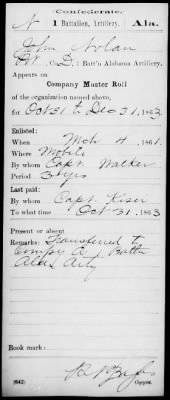 Confederate.
N 1 Battalion, Artillery. Ala.
John Nolan
Pvt., Co. D, 1 Batt'n Alabama Artillery.
Appears on
Company Muster Roll
of the organization named above,
for Oct 31 to Dec 31, 1863.
Enlisted:
When Mch 4, 1861.
Where Mobile
By whom Capt. Walker
Period 3 yrs
Last paid:
By whom Capt. Kiser
To what time Oct 31, 1863
Present or absent
Remarks: Transferred to
Compy A Battn
Ala Arty
Book mark:
(642) Copyist.